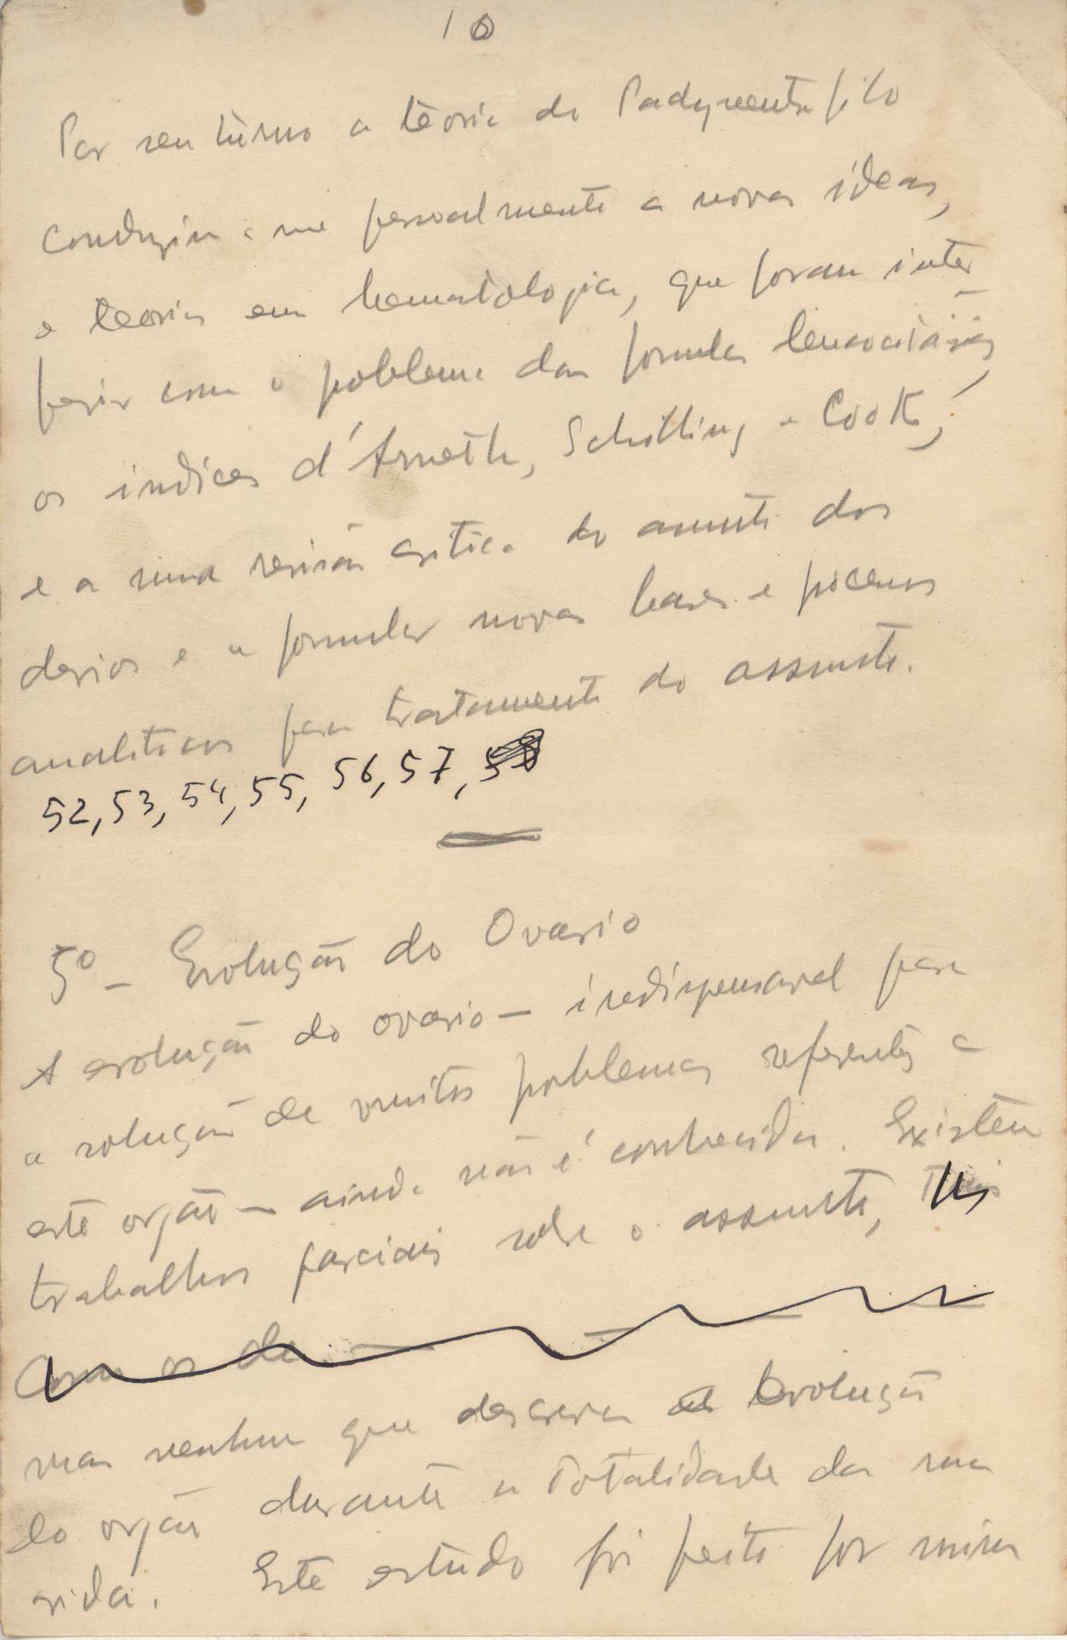 10
Por seu turno a teoria do
conduziu-me pessoalmente a novas ideas,
e teorias em hematologia, que foram inter
ferir com o problema das formulas leucocitárias,
os indices d'Arneth, Schilling e Cook,
e a uma revisão critica do assunto dos
desvios e a formular novas bases e processos
analiticos para tratamento do assunto.
52, 53, 54, 55, 56, 57, 58
5º - Evolução do Ovario
A evolução do ovario - indispensavel para
a solução de muitos problemas referentes a
este orgão - ainda não é conhecida. Existem
trabalhos parciais sobre o assunto,
Como os de
mas nenhum que descreva a evolução
do orgão durante a totalidade da sua
vida. Este estudo foi feito por mim